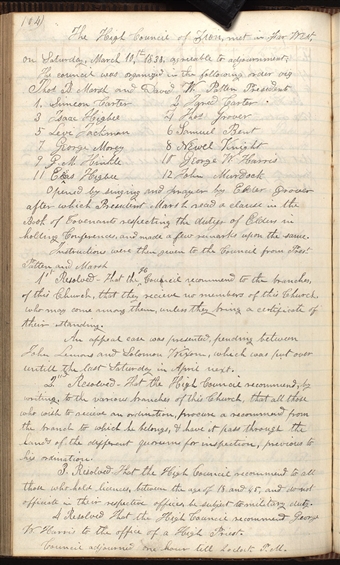 104
The High Council of Zion, met in Far West,
on Saturday, March 10th 1838. agreeable to adjournment.
The council was organized in the following order viz
Thos B. Marsh and David W. Patten President
1. Simeon Carter 2 Jared Carter
3 Isaac Higbee 4 Thos Grover
5 Levi Jackman 6 Samuel Bent
7 George Morey 8 Newel Knight
9 G. M. Hinkle 10 George W Harris
11 Elias Higbee 12 John Murdock
Opened by singing and prayer by Elder Grover
after which President Marsh read a clause in the
Book of Covenants respecting the duties of Elders in
holding Conference, and made a few remarks upon the same.
Instructions were then given to the Council from Prest
Patten and Marsh
1st Resolved - that the Council recommend to the branches,
of this Church, that they receive no members of this Church
who may come among them, unless they bring a certificate of
their standing.
An appeal case was presented, pending between
John Lemons and Solomon Wixom, which was put over
untill the last Saturday in April next.
2nd Resolved - That the High Council recommend, by
writing, to the various branches of this Church, that all those
who wish to receive an ordination, procure a recommend from
the branch to which he belongs, & have it pass through the
hands of the different quorums for inspection, previous to
his ordination.
3. Resolved That the High Council recommend to all
those who hold licenses, between the age of 18 and 45, and do not
officiate in their respective offices be subject to military duty.
4 Resolved That the High Council recommend George
W Harris to the office of a High Priest.
Council adjourned one hour till 2 oclock P.M.